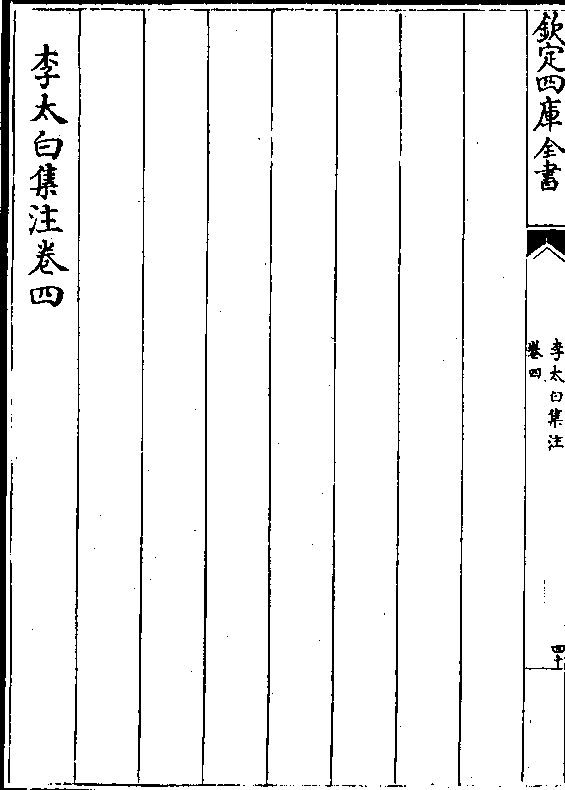 欽定四庫全書
李太白集注
卷四
四十
李太白集注卷四